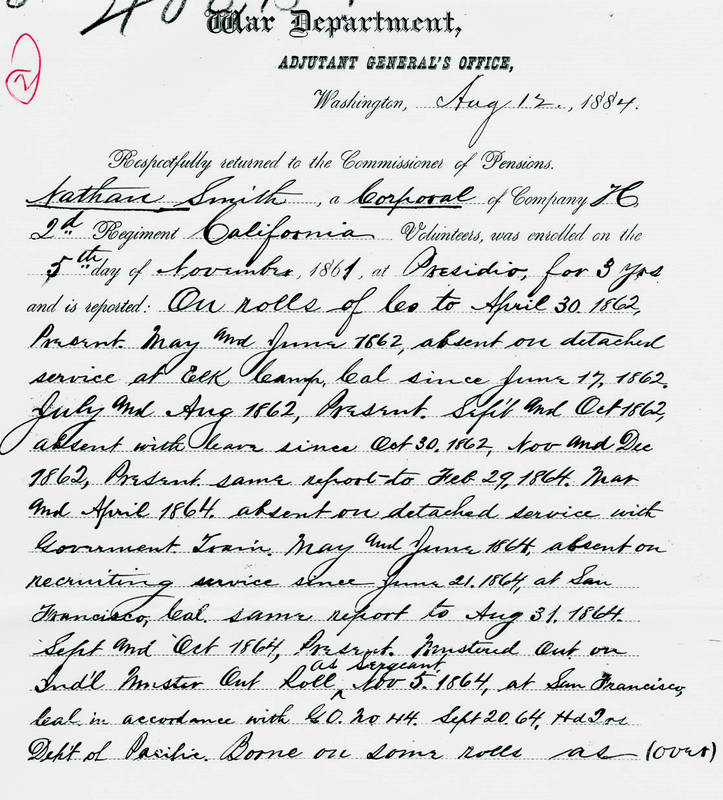 War Department,
ADJUTANT GENERAL'S OFFICE,
2
Washington, Aug 12., 1884.
Respectfully returned to the Commissioner of Pensions.
Nathan Smith, a Corporal of Company H,
2d Regiment California Volunteers, was enrolled on the
5th day of November, 1861, at Presidio, for 3 yrs
and is reported: On rolls of Co to April 30. 1862,
Present. May and June 1862, absent on detached
service at Elk Camp, Cal since June 17, 1862.
July and Aug 1862, Present. Sept and Oct 1862,
absent with leave since Oct 30. 1862, Nov and Dec
1862, Present same report to Feb. 29, 1864. Mar
and April 1864. absent on detached service with
Goverment Train. May and June 1864, absent on
recruiting service since June 21. 1864, at San
Francisco, Cal. same report to Aug 31. 1864.
Sept and Oct 1864, Present. Mustered Out on
Ind'l Muster Out Roll as Sergeant, Nov 5. 1864, at San Francisco,
Cal. in accordance with G.O. No 44. Sept 20. 64, Hd Qrs
Dept of Pacific. Borne on some rolls as (over)